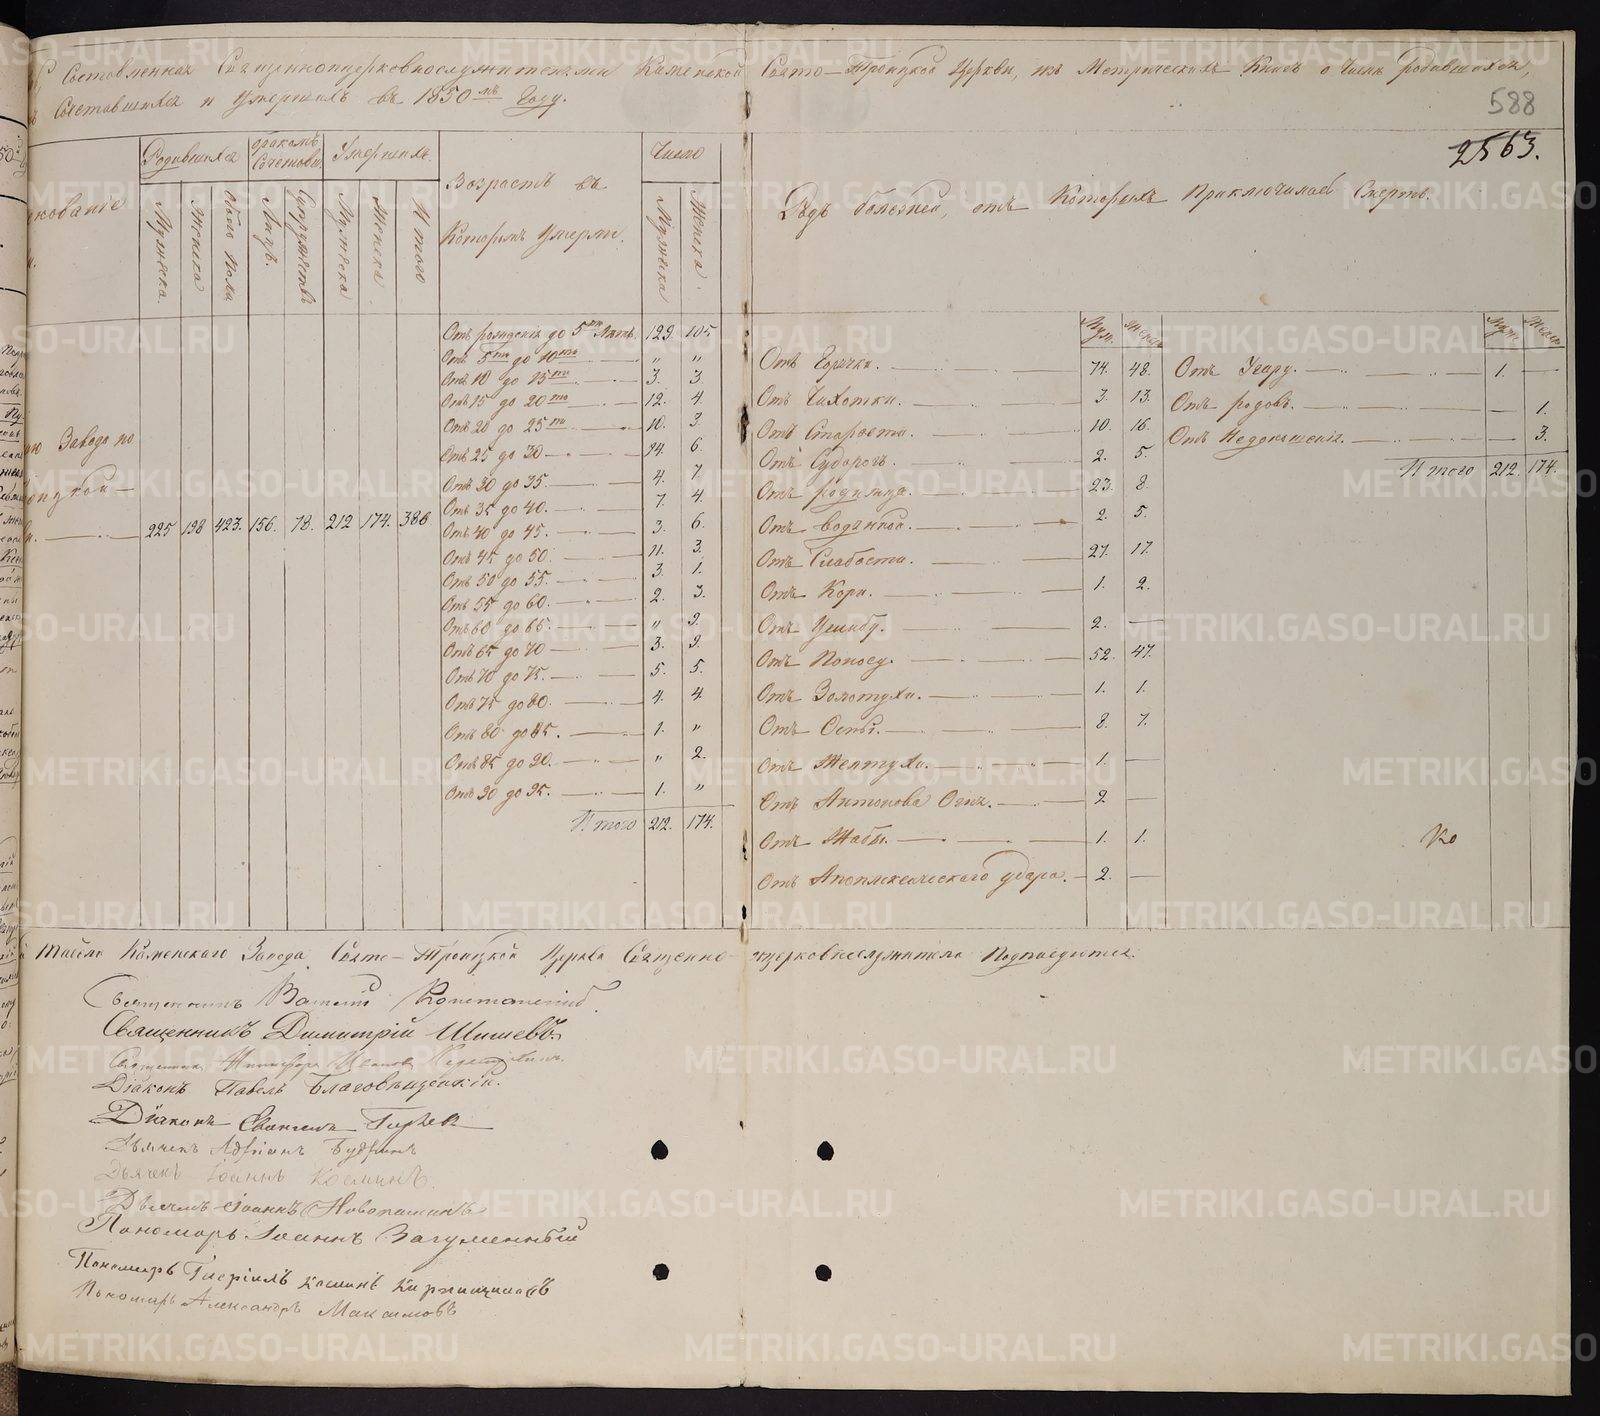 Составленная Священноцерковнослужителями Каменской Свято-Троицкой Церкви, изъ Метрическихъ Книгъ о числѣ родившихся,
Сочетавшихся и Умершихъ въ 1850мъ Году.
588
2563.
Родившихся
бракомъ Сочетавш.
Умершихъ.
Возрастъ въ
Которомъ Умерли.
Число
Родъ болезней, отъ Которыхъ Приключилась Смерть.
Мужеска.
Женска
Обоего пола
Лицъ.
Супружествъ
Мужеска
Женска.
Итого
Мужеска
Женска.
Муж. Женск.
Муж. Женск.
Завода по
225 198 423. 156. 78. 212 174. 386
Отъ рожденія до 5ти Лѣтъ. 129. 105.
Отъ 5ти до 10ти „ „
Отъ 10 до 15ти 3. 3.
Отъ 15 до 20ти 12. 4.
Отъ 20 до 25ти 10. 3.
Отъ 25 до 30 — 6.
Отъ 30 до 35. — 4. 7.
Отъ 35 до 40. — 7. 4.
Отъ 40 до 45. — 3. 6.
Отъ 45 до 50. — 11. 3.
Отъ 50 до 55. — 3. 1.
Отъ 55 до 60. — 2. 3.
Отъ 60 до 65. — „ 9.
Отъ 65 до 70 — 3. 9.
Отъ 70 до 75. — 5. 5.
Отъ 75 до 80. — 4. 4
Отъ 80 до 85. — 1. „
Отъ 85 до 90. — „ 2.
Отъ 90 до 95. — 1. „
Итого 212. 174.
Отъ Горячки. — 74. 48.
Отъ Чахотки. — 3. 13.
Отъ Старости. — 10. 16.
Отъ Судорогъ. — 2. 5.
Отъ родимца. — 23. 8.
Отъ водяной. — 2. 5.
Отъ Слабости. — 27. 17.
Отъ Кори. — 1. 2.
Отъ Ушибу. — 2. —
Отъ Поносу. — 52. 47.
Отъ Золотухи. — 1. 1.
Отъ Оспы. — 8. 7.
Отъ Желтухи. — 1. —
Отъ Антонова Огня. — 2 —
Отъ Жабы. — 1. 1.
Отъ Апоплексическаго удара. — 2. —
Отъ Угару. — 1. —
Отъ родовъ. — — 1.
Отъ Недоношенія. — — 3.
Итого 212. 174.
Ко
Табели Каменскаго Завода Свято-Троицкой Церкви Священно-церковнослужители Подписуются.
Священникъ Василій Константиновъ.
Священникъ Димитрій Шишевъ.
Священникъ
Діаконъ Павелъ Благовѣщенскій.
Діаконъ
Дьячекъ Адріанъ Будринъ
Дьячекъ Іоаннъ Косминъ.
Дьячекъ Іоаннъ Новопашинъ
Пономарь Іоаннъ Загуменный
Пономарь Гавріилъ
Пономарь Александръ Максимовъ
METRIKI.GASO-URAL.RU